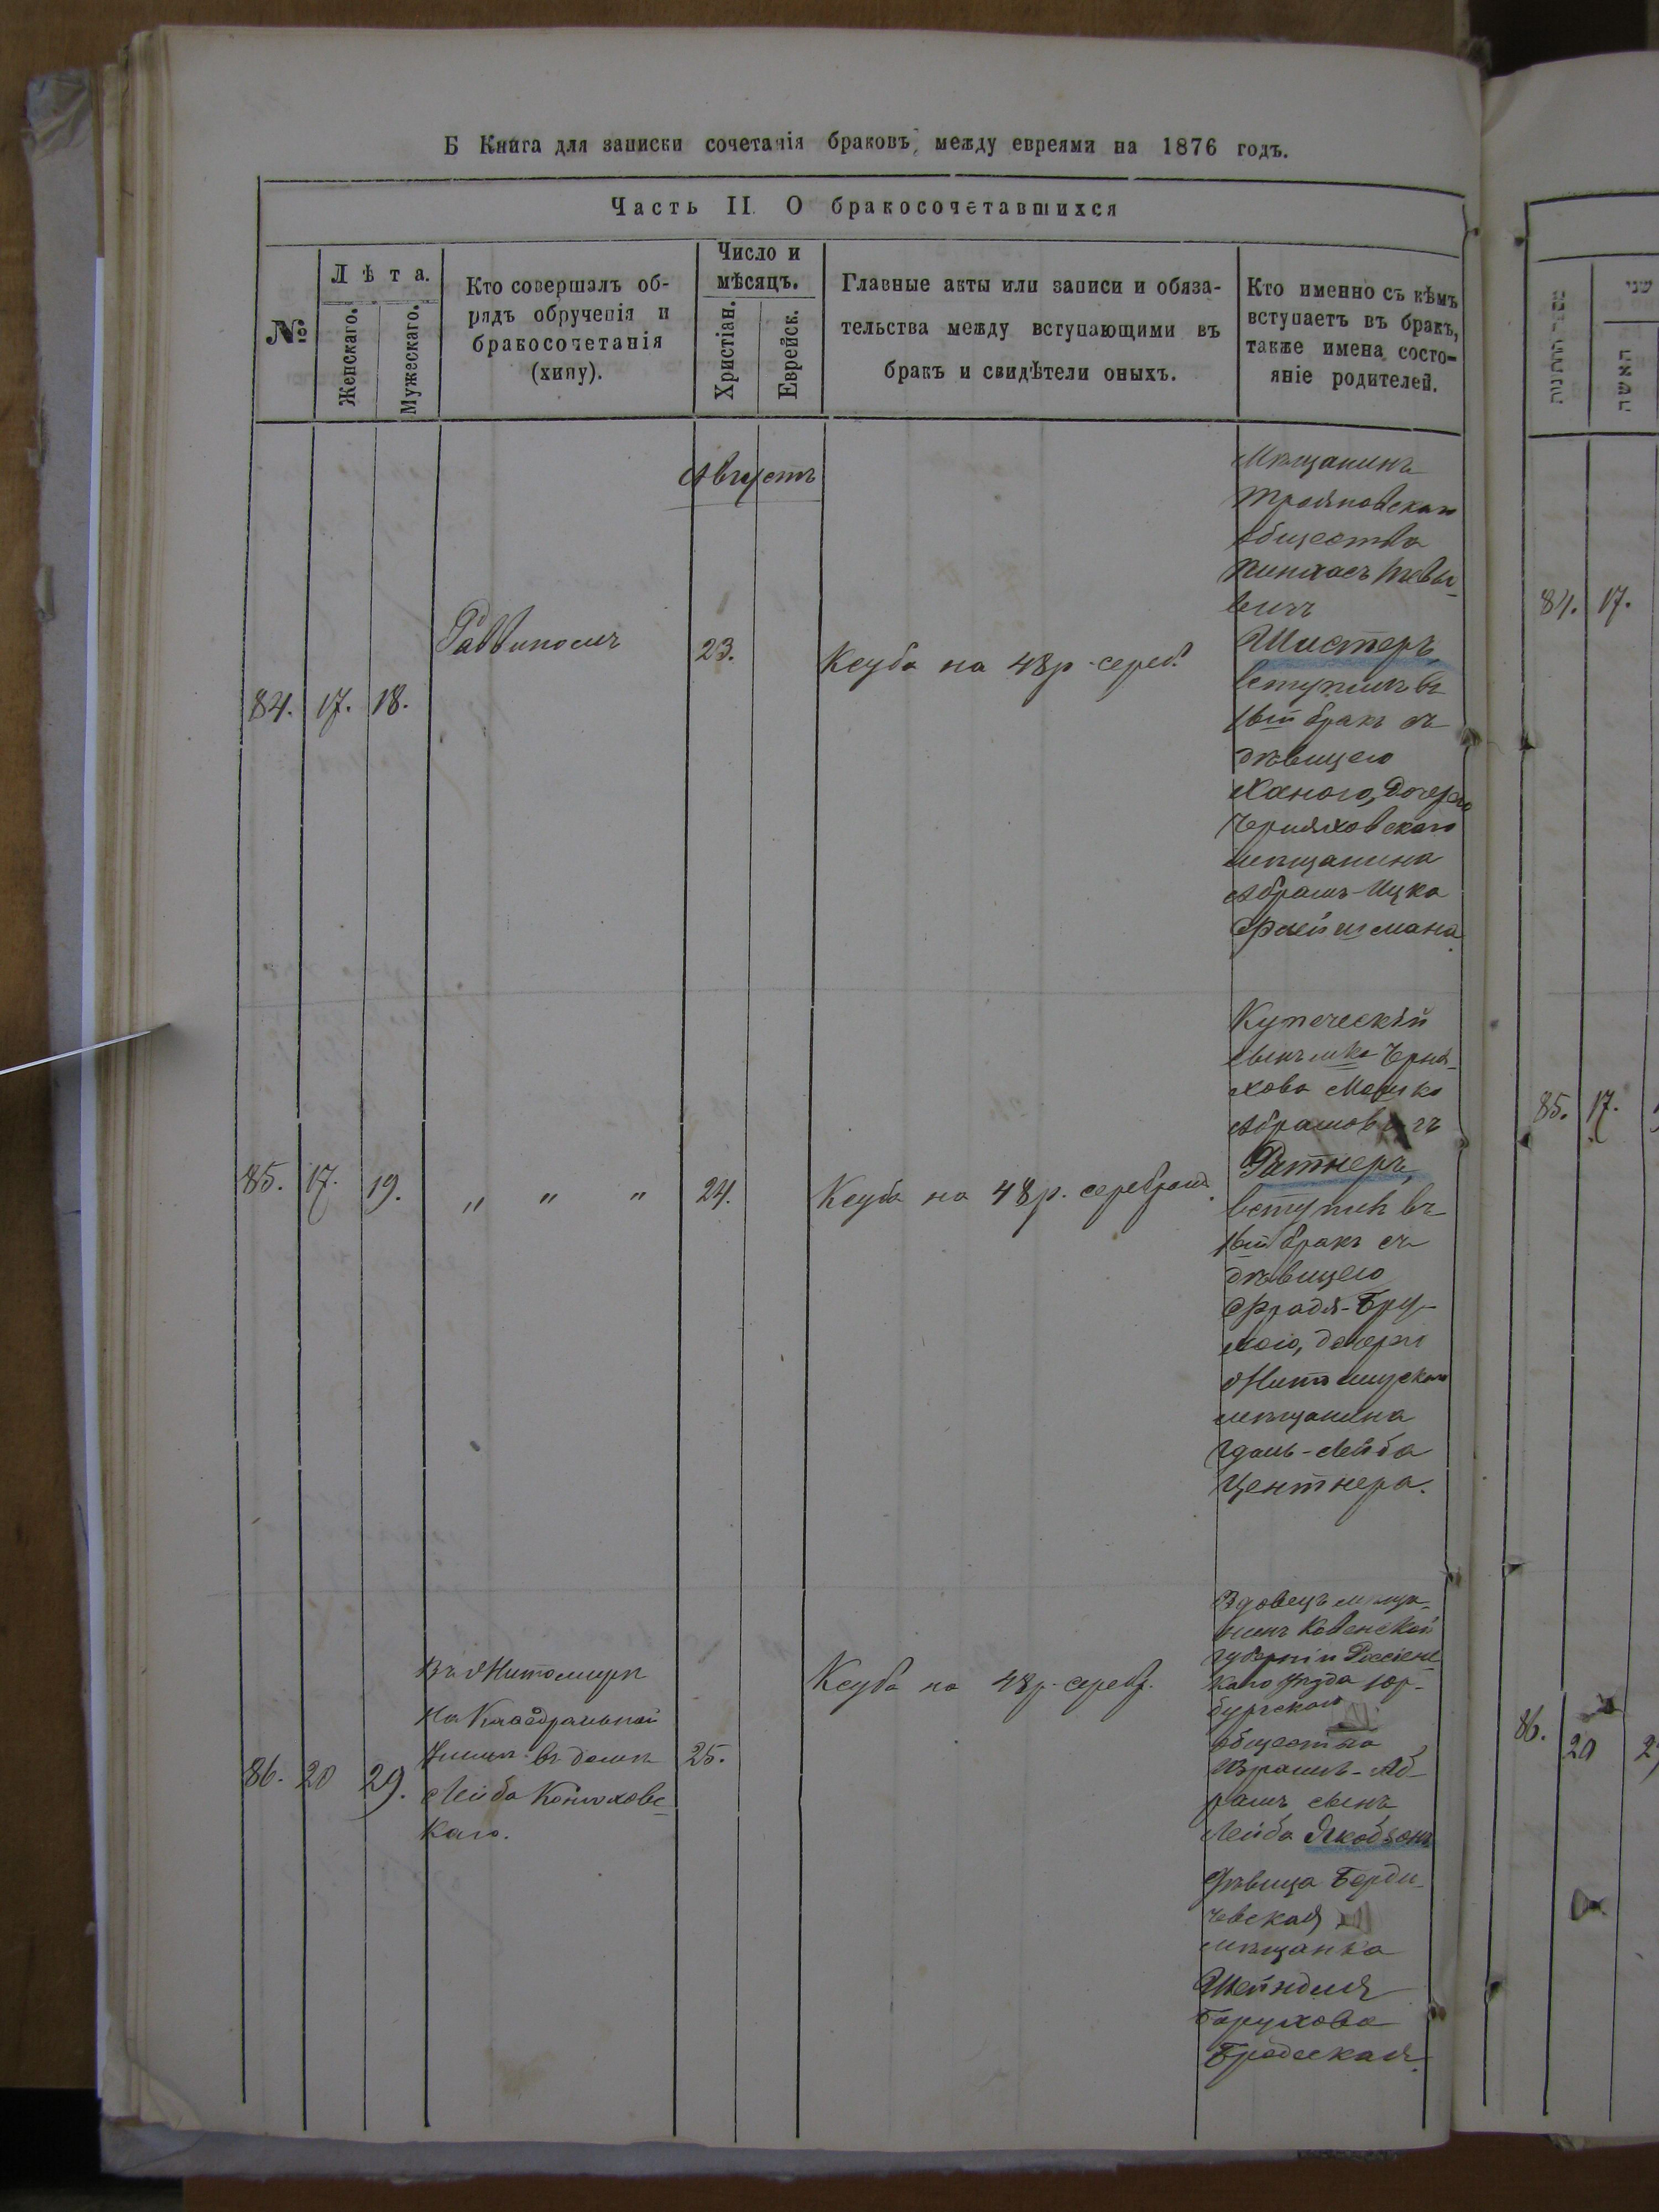 Б Книга для записки сочетанія браковъ между евреями на 1876 годъ.
Часть II О бракосочетавшихся
№
Лѣта.
Женскаго.
Мужескаго.
Кто совершалъ об-
рядъ обрученія и
бракосочетанія
(хипу).
Число и
мѣсяцъ.
Христіан.
Еврейск.
Главные акты или записи и обяза-
тельства между вступающими въ
бракъ и свидѣтели оныхъ.
Кто именно съ кѣмъ
вступаетъ въ бракъ,
также имена состо-
яніе родителей.
Августъ
84.
17.
18.
Раввиномъ
23.
Ксуба на 48 р. сереб.
Мѣщанинъ
Трояновскаго
общества
Пинхасъ Тевы-
вичъ
Шистеръ,
вступилъ въ
1вый бракъ съ
дѣвицею
Ханою, дочерью
Черняховскаго
мѣщанина
Абрамъ-Ицка
Флейшмана.
85.
17.
19.
„ „ „
24.
Ксуба на 48 р. серебромъ.
Купеческій
сынъ м-ка Черня-
хова Мошко
Абрамовичъ
Ратнеръ,
вступилъ въ
1вый бракъ съ
дѣвицею
Фрадя-Бру-
хою, дочери
Житомирскаго
мѣщанина
Лейба
Центнера.
86.
20
29.
Въ Житомирѣ
на Кафедральной
улицѣ въ домѣ
Лейба Конюховс-
каго.
25.
Ксуба на 48 р. серебр.
Вдовецъ мѣща-
нинъ Ковенской
губерніи Россіенс
каго уѣзда Юр-
бургскаго
общества
Израиль-Аб-
рамъ сынъ
Лейба Якобзонъ
Дѣвица Берди-
чевская
мѣщанка
Шейндля
Борухова
Бродская.
שני
האשה
84.
17.
85.
17.
86.
20